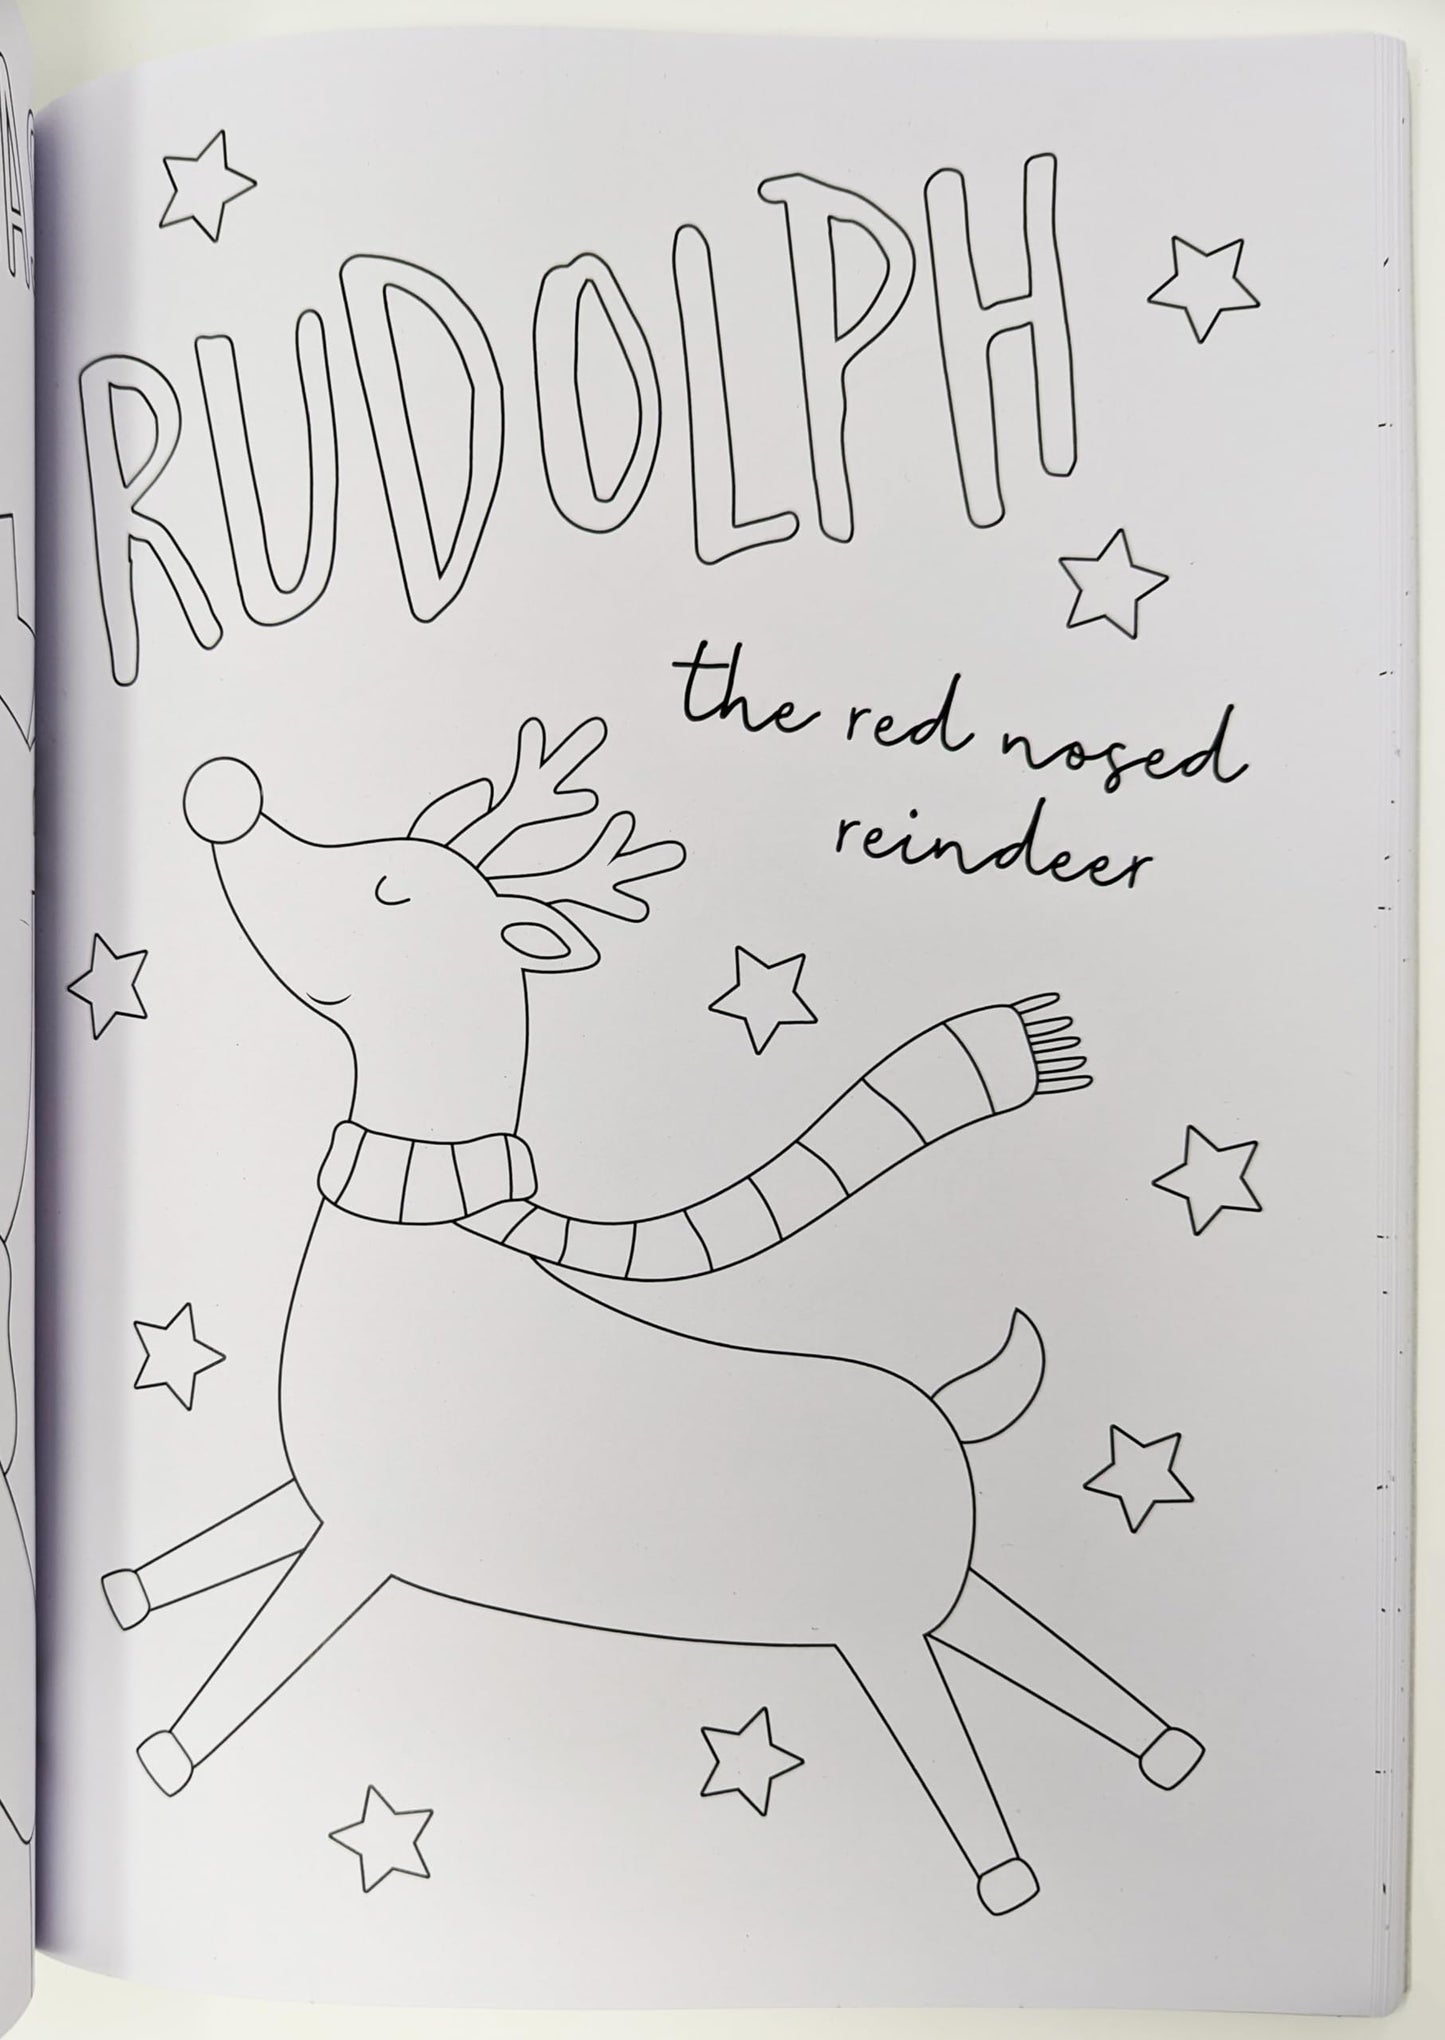 RUDOLPH
the red nosed
reindeer